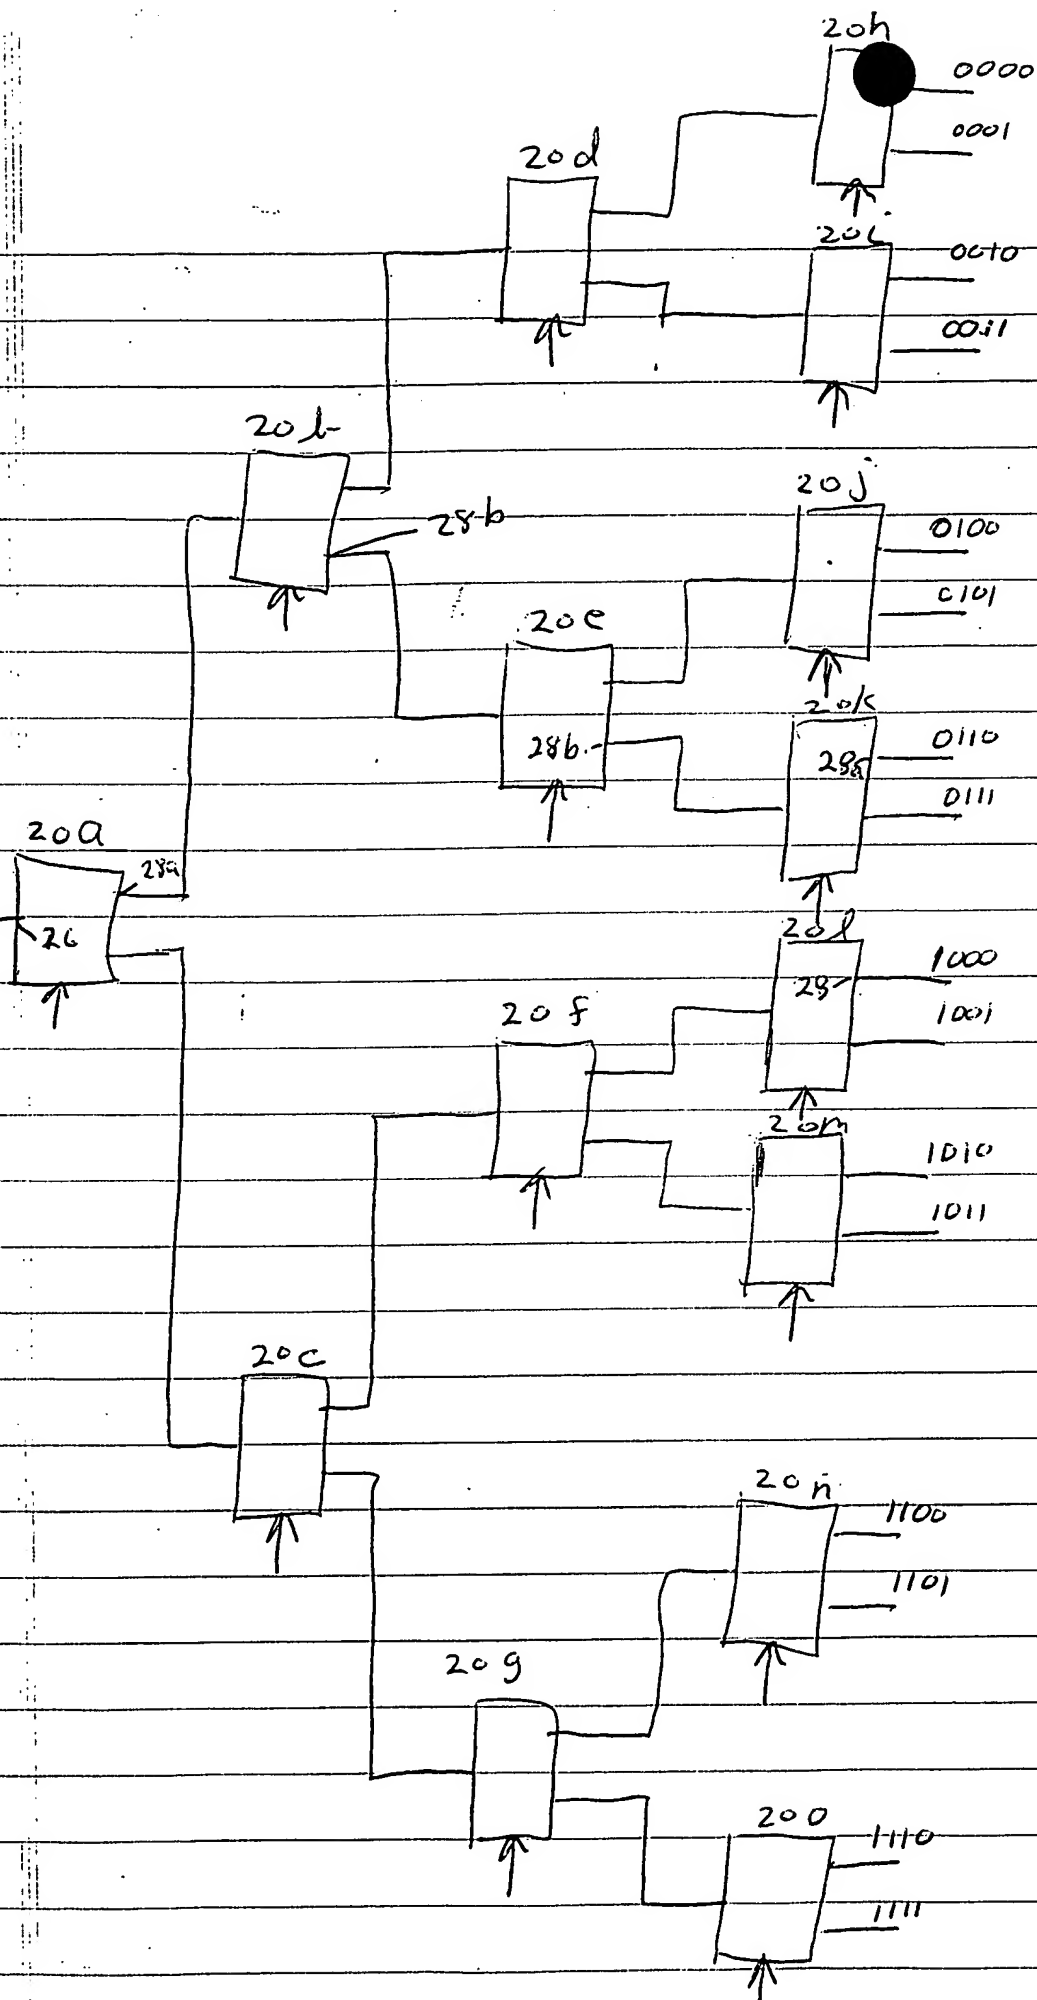 20h
0000
0001
20d
20i
0010
0011
20b
28b
20j
0100
0101
20e
28b
20k
0110
28a
0111
20a
28a
26
20l
1000
28
1001
20f
20m
1010
1011
20c
20n
1100
1101
20g
20o
1110
1111